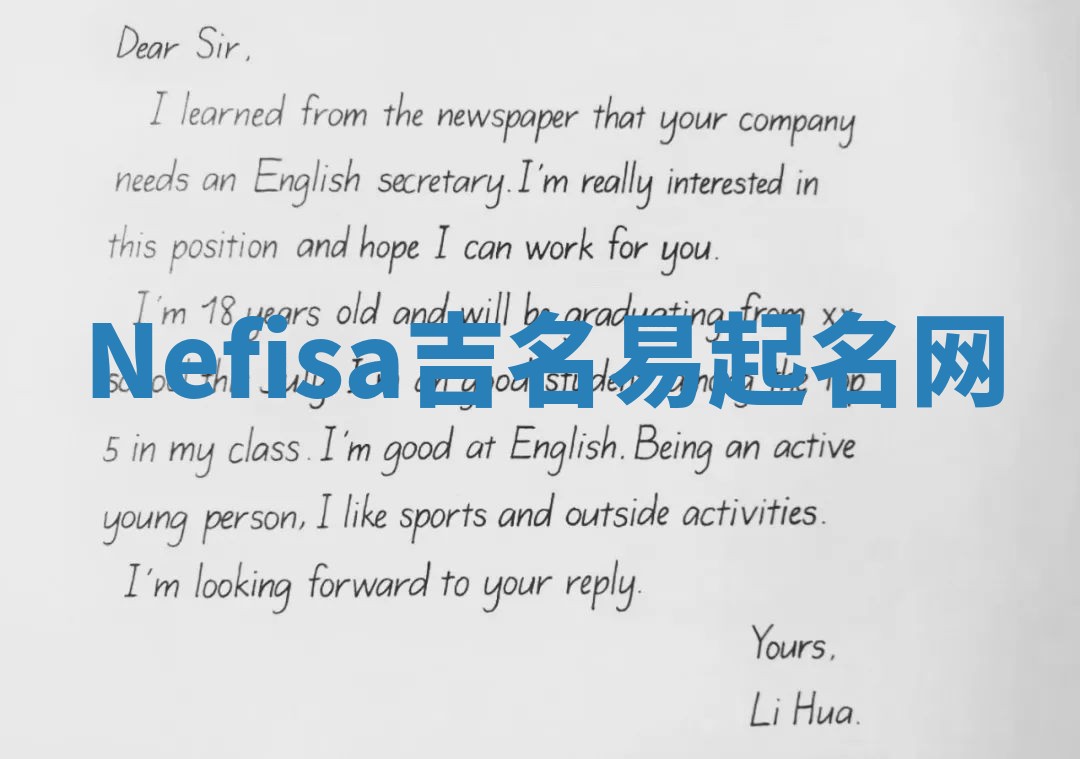 Dear Sir,
I learned from the newspaper that your company
needs an English secretary. I'm really interested in
this position and hope I can work for you.
I'm 18 years old and will be graduating from xx
Nefisa吉名易起名网
school this July. I'm good student among the top
5 in my class. I'm good at English. Being an active
young person, I like sports and outside activities.
I'm looking forward to your reply.
Yours,
Li Hua.